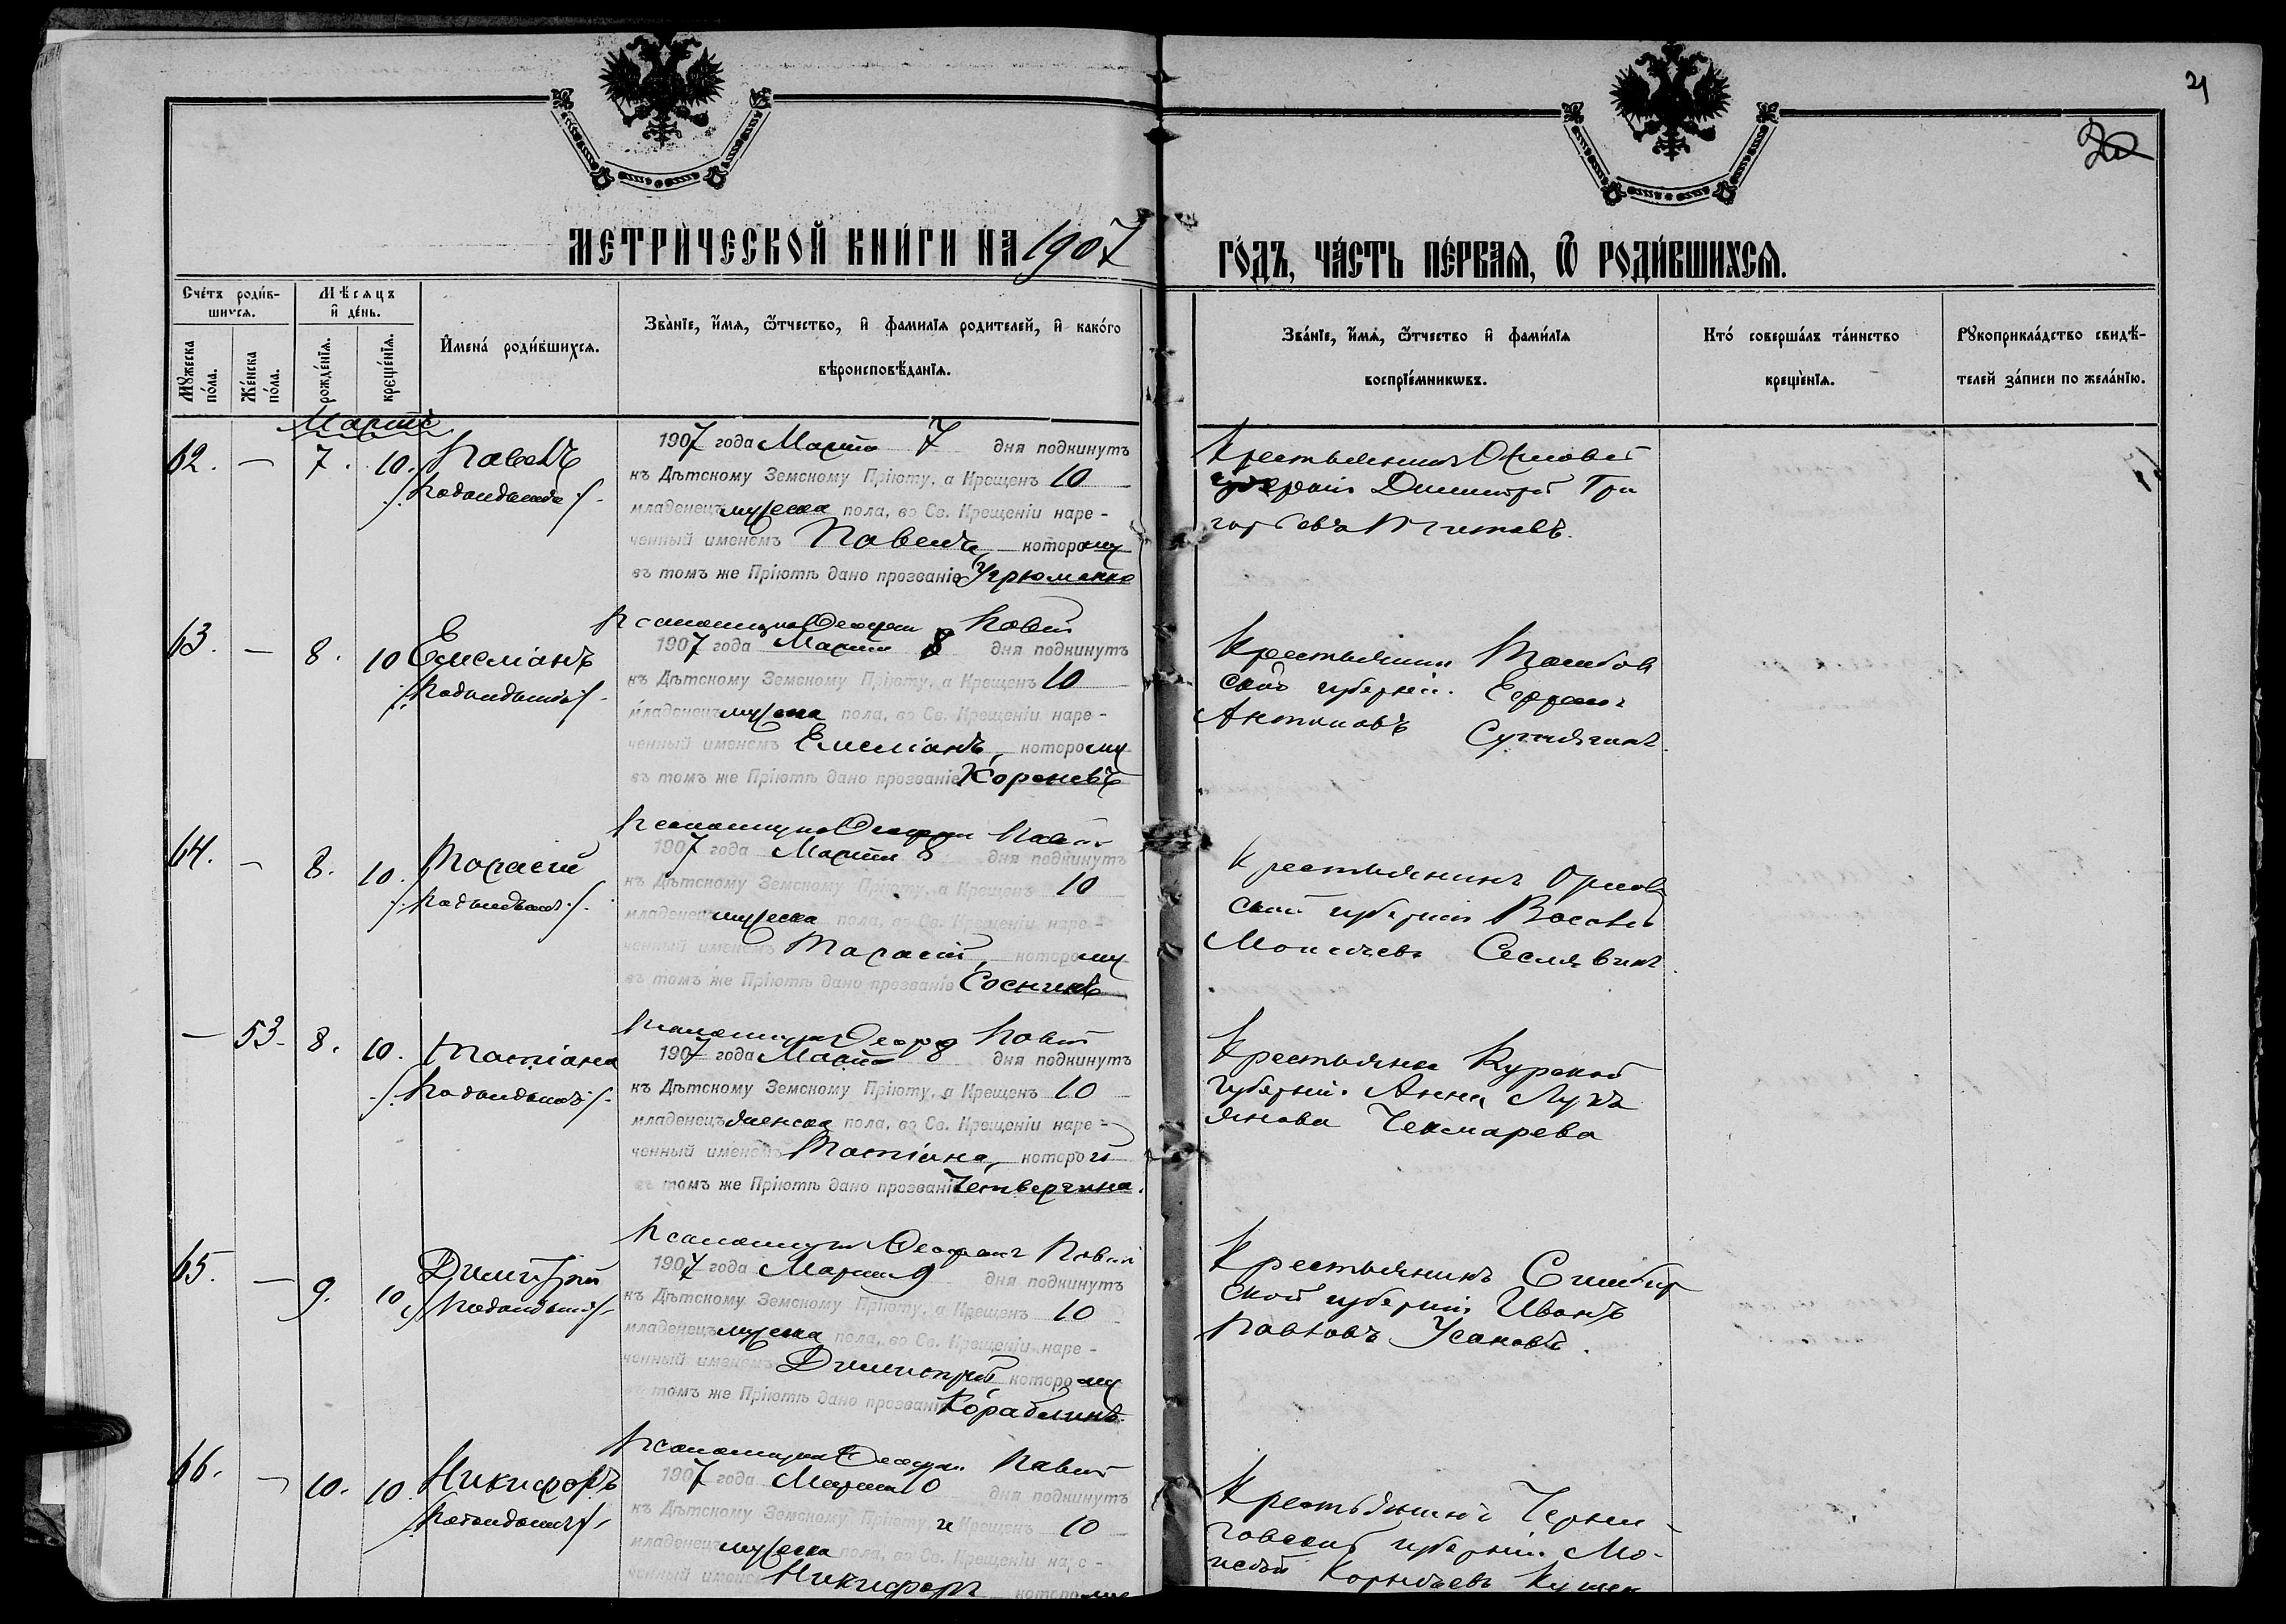 21
20
МЕТРИ́ЧЕСКОЙ КНИ́ГИ НА 1907
ГО́ДЪ, ЧА́СТЬ ПЕ́РВАѦ, Ѿ РОДИ́ВШИХСѦ.
Сче́тъ роди́в-
шихсѧ.
Мѣсѧцъ
и҆ де́нь.
Мꙋжеска
по́ла.
Же́нска
по́ла.
рожде́нїѧ.
креще́нїѧ.
И҆мена́ роди́вшихсѧ.
Зва́нїе, и҆́мѧ, ѻ҆́тчество, и҆ фами́лїѧ роди́телей, и҆ како́го
вѣроисповѣ́данїѧ.
Зва́нїе, и҆́мѧ, ѻ҆́тчество и҆ фами́лїѧ
воспрїе́мникѡвъ.
Кто́ соверша́лъ та́инство
креще́нїѧ.
Рꙋкоприкла́дство свидѣ́-
телей за́писи по жела́нїю.
Мартъ
62. — 7. 10. Павелъ
1907 года Марта 7 дня подкинутъ
къ Дѣтскому Земскому Пріюту, а Крещенъ 10
младенецъ мужеска пола, во Св. Крещеніи наре-
ченный именемъ Павелъ, которому
въ томъ же Пріютѣ дано прозваніе Угрюменко
Крестьянинъ
губерніи Димитрій Гри
горьевъ
63. — 8. 10 Емеліанъ
1907 года Марта 8 дня подкинутъ
къ Дѣтскому Земскому Пріюту, а Крещенъ 10
младенецъ мужеска пола, во Св. Крещеніи наре-
ченный именемъ Емеліанъ, которому
въ томъ же Пріютѣ дано прозваніе Кореневъ
Крестьянинъ Тамбов
ской губерніи
Антоновъ
64. — 8. 10. Тарасій
1907 года Марта 8 дня подкинутъ
къ Дѣтскому Земскому Пріюту, а Крещенъ 10
младенецъ мужеска пола, во Св. Крещеніи наре-
ченный именемъ Тарасій, которому
въ томъ же Пріютѣ дано прозваніе Соснинъ
Крестьянинъ Орлов
ской губерніи
Моисеевъ Сеславинъ
— 53. 8. 10. Татіана
1907 года Марта 8 дня подкинутъ
къ Дѣтскому Земскому Пріюту, а Крещенъ 10
младенецъ женска пола, во Св. Крещеніи наре-
ченный именемъ Татіана, которой
въ томъ же Пріютѣ дано прозваніе Четвергина.
Крестьянка Курской
губерніи Анна Лукъ
янова Чекмарева
65. — 9. 10 Димитрій
1907 года Марта 9 дня подкинутъ
къ Дѣтскому Земскому Пріюту, а Крещенъ 10
младенецъ мужеска пола, во Св. Крещеніи наре-
ченный именемъ Димитрій которому
въ томъ же Пріютѣ дано прозваніе Кораблинъ.
Крестьянинъ Симбир
ской губерніи Иванъ
Павловъ Усановъ.
66. — 10. 10. Никифоръ
1907 года Марта 10 дня подкинутъ
къ Дѣтскому Земскому Пріюту и Крещенъ 10
младенецъ мужеска пола, во Св. Крещеніи наре-
ченный именемъ Никифоръ которому
Крестьянинъ Черни-
говской губерніи Мо-
исей